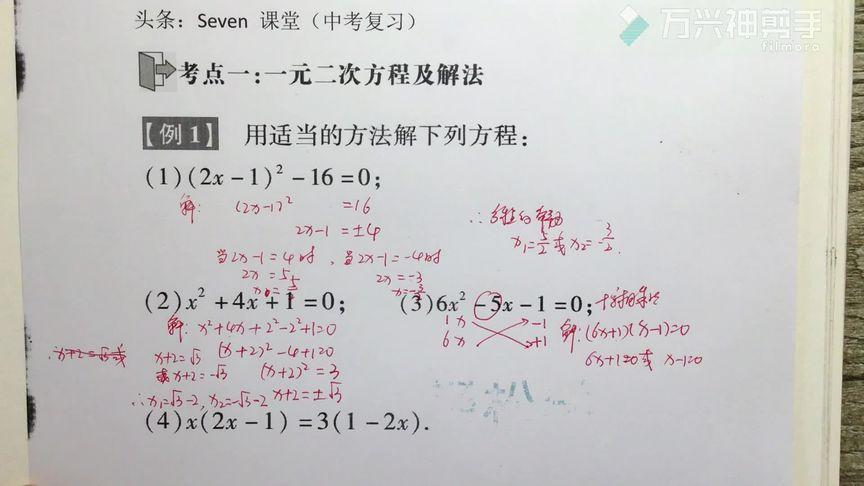 头条：Seven 课堂（中考复习）
万兴神剪手
filmora
考点一：一元二次方程及解法
【例1】 用适当的方法解下列方程：
(1)(2x－1)²－16＝0；
解： (2x-1)² =16
2x-1 = ±4
当2x-1=4时，当2x-1=-4时
2x=5
2x=-3
x=-3/2
∴方程的解为
x₁=5/2 或 x₂=-3/2.
(2)x²＋4x＋1＝0；
解： x²+4x+2²-2²+1=0
(x+2)²-4+1=0
(x+2)²=3
x+2=±√3
x+2=√3
或x+2=-√3
∴x₁=√3-2, x₂=-√3-2
(3)6x²－5x－1＝0；
十字相乘法
1x -1
6x +1
解：(6x+1)(x-1)=0
6x+1=0或 x-1=0
(4)x(2x－1)＝3(1－2x).